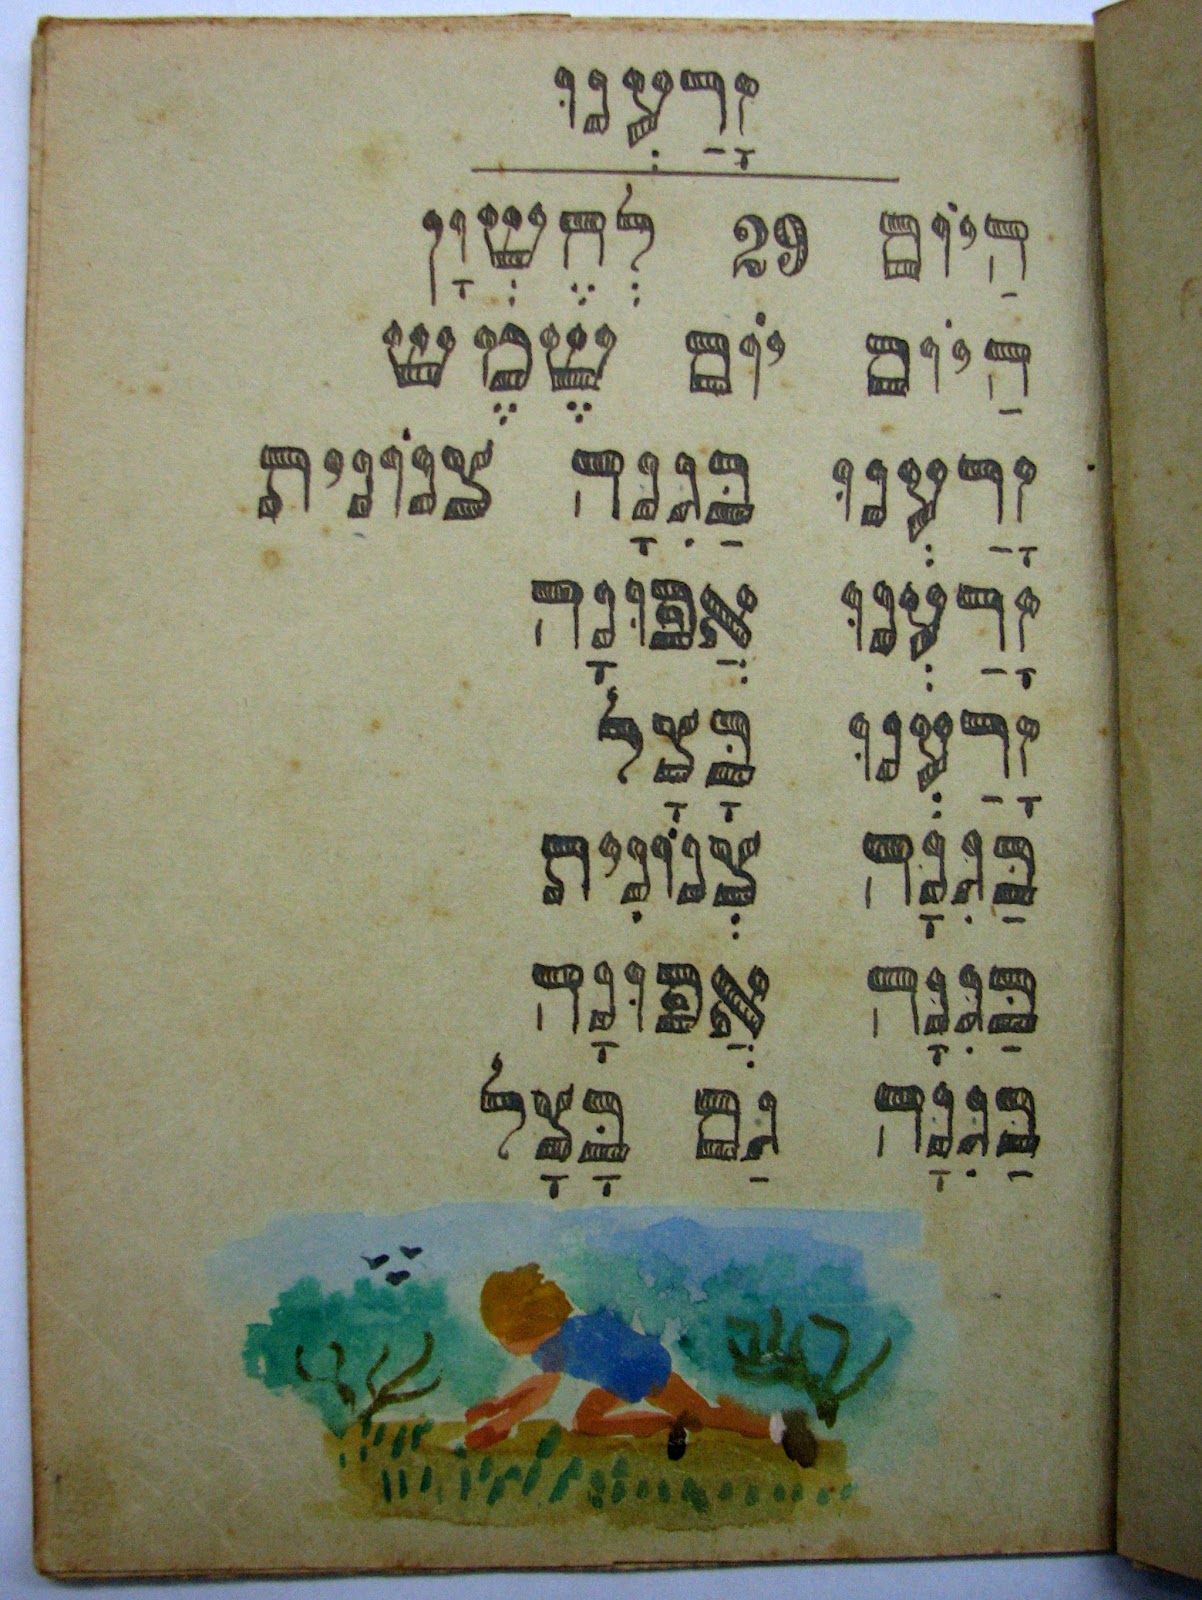 זָרַעְנוּ
הַיוֹם 29 לְחֶשְוָן
הַיוֹם יוֹם שֶמֶש
זָרַעְנוּ בַּגִנָה צנוֹנית
זָרַעְנוּ אֲפוּנָה
זָרַעְנוּ בָּצָל
בַּגִנָה צְנוֹנִית
בַּגִנָה אֲפוּנָה
בַּגִנָה גַם בָּצָל